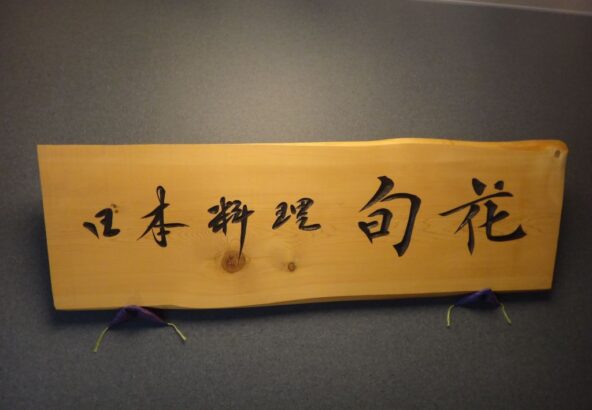 日本料理 旬花